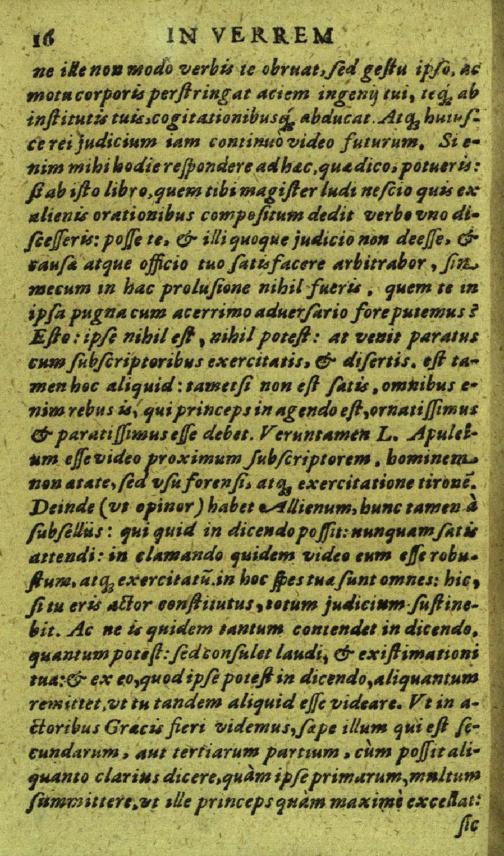 16 IN VERREM
ne ille non modo verbis te obruat, sed gestu ipso, ac
motu corporis perstringat aciem ingenij tui, teq́, ab
institutis tuis, cogitationibusq́, abducat. Atq́, huius-
ce rei judicium iam continuò video futurum. Si e-
nim mihi hodie respondere ad hac, qua dico, potueris:
si ab isto libro, quem tibi magister ludi nescio quis ex
alienis orationibus compositum dedit verbo vno di-
scesseris: posse te, & illi quoque judicio non deesse, &
causa atque officio tuo satisfacere arbitrabor, sin
mecum in hac prolusione nihil fueris, quem te in
ipsa pugna cum acerrimo aduersario fore putemus?
Esto: ipse nihil est, nihil potest: at venit paratus
cum subscriptoribus exercitatis, & disertis. est ta-
men hoc aliquid: tametsi non est satis, omnibus e-
nim rebus is, qui princeps in agendo est, ornatissimus
& paratissimus esse debet. Veruntamen L. Apulei-
um esse video proximum subscriptorem, hominem
non atate, sed vsu forensi, atq́, exercitatione tironē.
Deinde (vt opinor) habet Allienum, hunc tamen à
subselliis: qui quid in dicendo possit: nunquam satis
attendi: in clamando quidem video eum esse robu-
stum, atq́, exercitatū. in hoc spes tua sunt omnes: hic,
si tu eris actor constitutus, totum judicium sustine-
bit. Ac ne is quidem tantum contendet in dicendo,
quantum potest: sed consulet laudi, & existimationi
tua: & ex eo, quod ipse potest in dicendo, aliquantum
remittet, vt tu tandem aliquid esse videare. Vt in a-
ctoribus Gracis fieri videmus, sape illum qui est se-
cundarum, aut tertiarum partium, cùm possit ali-
quanto clarius dicere, quàm ipse primarum, multum
summittere, vt ille princeps quàm maximè excellat:
sic